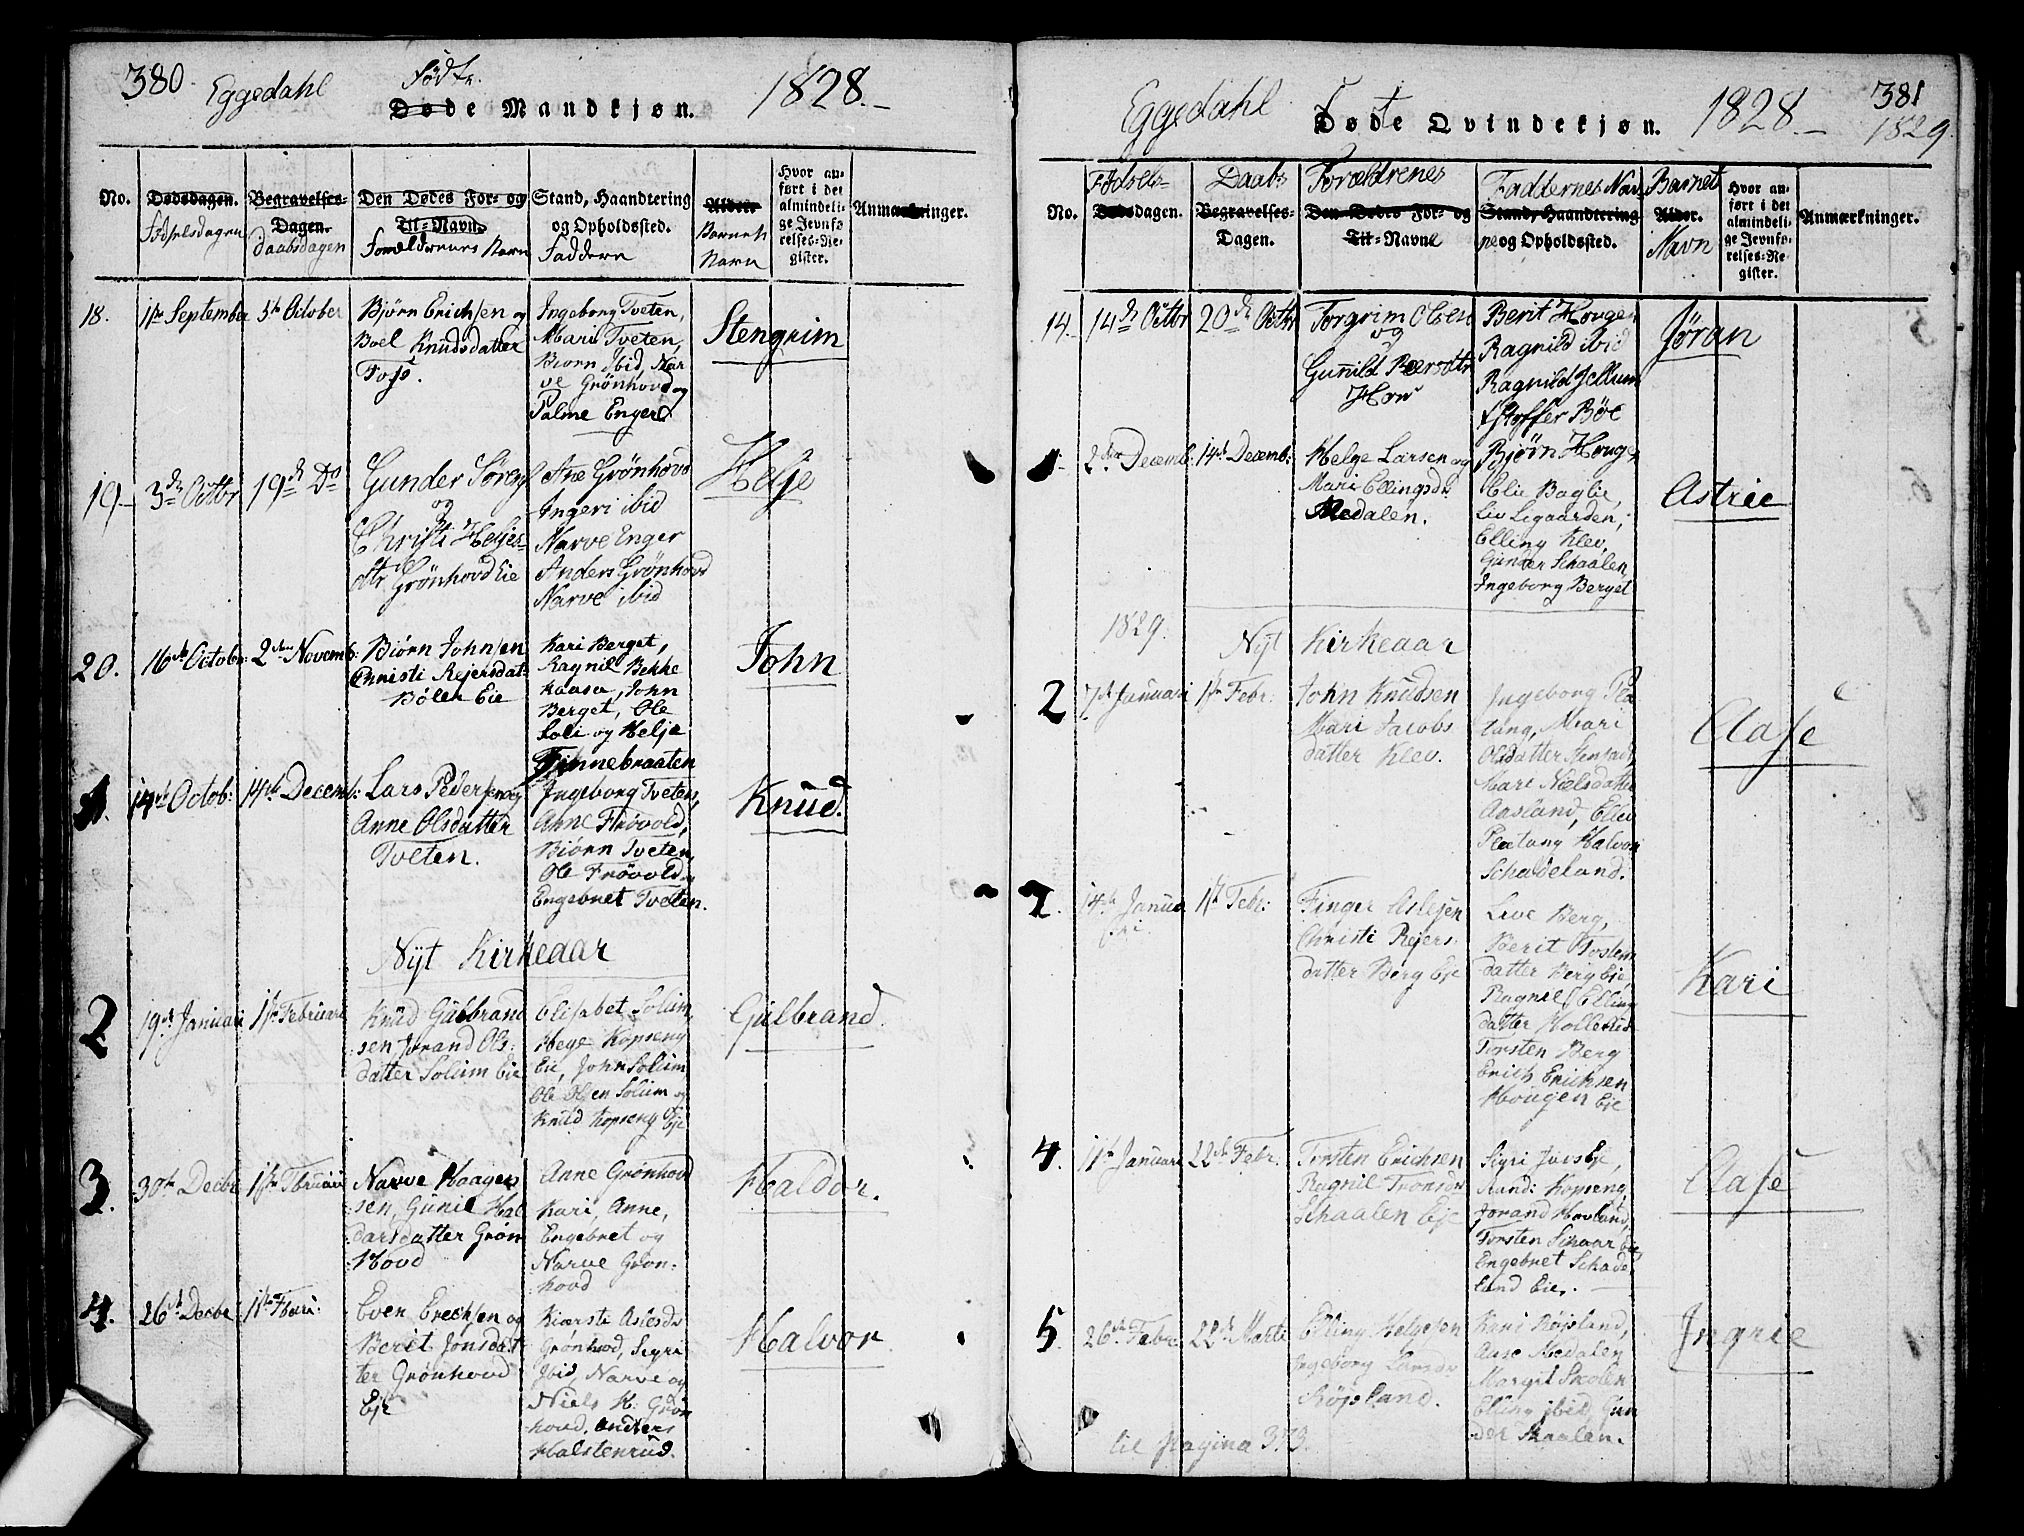 380
Eggedahl
Fødte
Døde Mandkjøn.
1828.
No.
Dødsdagen.
Fødselsdagen
Begravelses-
Dagen.
daabsdagen
Den Dødes For- og
Til-Navn.
Forældrenes Navn
Stand, Haandtering
og Opholdssted.
Faddere
Alder
Barnets
Navn
Hvor an-
ført i det
almindeli-
ge Jevnfø-
relses-Re-
gister.
Anmærkninger.
18.
1ste September
5te October
Bjørn Erichsen og
Boel Knudsdatter
Foss.
Ingeborg Tveten,
Mari Tveten,
Biorn Ibid, Nar
ve Grönhovd og
Palme Enger
Stengrim
19
3de Octbr
19de Do
Gunder Sören
og
Christi Heljes-
dtr Grönhovd Eie
Ane Grönhovd
Ingeri ibid
Narve Enger
Anders Grönhovd
Narve ibid
Helje
20.
16de Octobr:
2den Novemb:
Biørn Johnsen
Christi Rejersdat-
Bølen Eie
Kari Berget,
Ragnil Bekke
kaasa, John
Berget, Ole
Loli og Helje
Finnebraaten
John
1.
14de Octob:
14de Decemb:
Lars Pedersen og
Anne Olsdatter
Tveten.
Ingeborg Tveten,
Anne Frøvold,
Biørn Tveten,
Ole Frövold og
Engebret Tveten.
Knud.
Nÿt Kirkeaar
2
19de Januari
1ste Februari
Knud Gulbrand
sen Jorand Ols:
datter Solum Eie
Elisabet Solum,
Hege Kopseng
Eie, John Solum
Ole Olsen Solum og
Knud Kopseng Eje
Gulbrand
3.
30te Decbr
1ste Fbruari
Narve Haagen
sen, Gunil Hal
darsdatter Grøn
Hovd
Anne Grønhovd
Kari, Anne,
Engebret og
Narve Grøn:
hovd
Haldor.
4.
26de Decbr
1ste Fbari:
Even Erechsen og
Berit Jonsdat
ter Grønhovd
Eje
Kiersti Aslesdr
Grönhovd, Sigri
Ibid, Narve og
Niels H: Grön
hovd, Anders
Halstenrud.
Halvor
Eggedahl
Døde Qvindekjøn.
1828
381
1829
No.
Fødsels-
Dødsdagen.
Daabs
Begravelses-
Dagen.
Forældrenes
Den Dødes For- og
Til-Navne
Faddernes Nav
Stand, Haandtering
ne og Opholdssted.
Barnets
Alder.
Navn
Hvor an-
ført i det
almindeli-
ge Jevnfø-
relses-Re-
gister.
Anmærkninger.
14.
14de Octbr
20de Octbr
Torgrim Olsen
og
Gunild Peersdtr
Berit Hougen
Ragnild ibid
Ragnild Jellum
Støffer Böe
Bjørn Hougen
Jöran
1
2den Decemb.
14de Decemb:
Helge Larsen og
Mari Ellingsdr
Medalen.
Elie Baglie,
Liv Ligaarden,
Elling Klev,
Gunder Schaalen
Ingeborg Berget
Astrie
1829.
Nÿt Kirkeaar
2
7de Januari
1ste Febr:
John Knudsen
Mari Jacobs
datter Klev.
Ingeborg Pla
tang, Mari
Olsdatter
Mari Nielsdatter
Aasland,
Platang Halvor
Schadeland.
Aase
14de Janua
ri
1ste Febr:
Finger Aslesen
Christi Rejers
datter Berg Eje
Live Berg,
Berit Tosten
datter Berg Eje
Ragnil Elling
datter
Torsten Berg
Erich Erichsen
Hougen Eje
Kari
4.
11te Januari
22de Febr.
Torsten Erichsen
Ragnil Tronsdr
Schaalen Eje
Sigri
Rand: Kopseng,
Jorand Hovland,
Torsten Schaar Eie,
Engebret Schade
land Eie.
Aase
5.
26de Febr:
22de Marti
Elling Helgesen
Ingeborg Larsdr
Röjsland.
Kari Röjsland,
Aase Medalen
Margit Skolen
Elling ibid, Gun
der Skaalen.
Ingrie
til pagina 373.